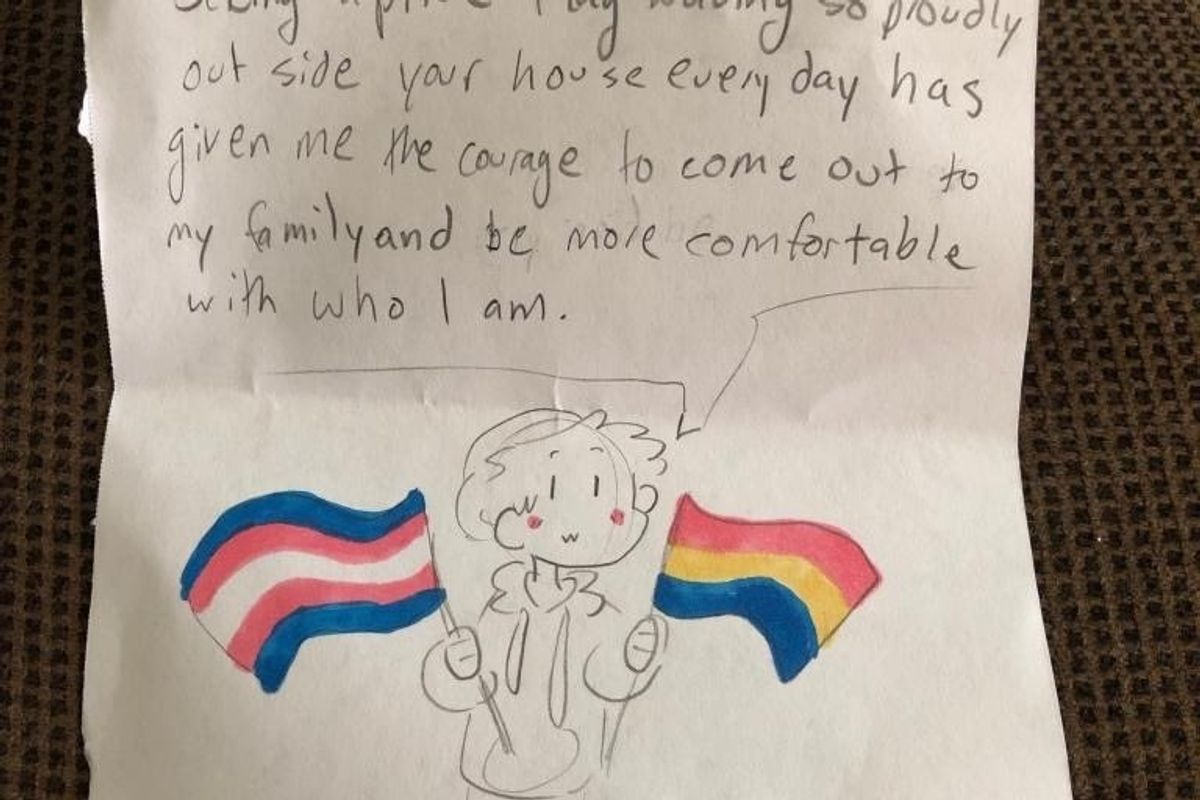 Seeing a pride flag waving so proudly
out side your house every day has
given me the courage to come out to
my family and be more comfortable
with who I am.